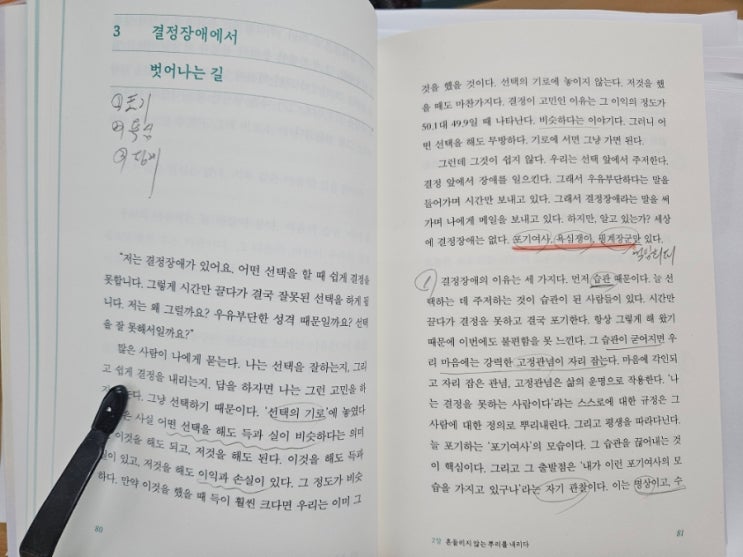 3 결정장애에서
벗어나는 길
①포기
②욕심
③핑계
"저는 결정장애가 있어요. 어떤 선택을 할 때 쉽게 결정을
못합니다. 그렇게 시간만 끌다가 결국 잘못된 선택을 하게 됩
니다. 저는 왜 그럴까요? 우유부단한 성격 때문일까요? 선택
을 잘 못해서일까요?"
많은 사람이 나에게 묻는다. 나는 선택을 잘하는지, 그리
고 쉽게 결정을 내리는지. 답을 하자면 나는 그런 고민을 하
다. 그냥 선택하기 때문이다. '선택의 기로'에 놓였다
은 사실 어떤 선택을 해도 득과 실이 비슷하다는 의미
이것을 해도 되고, 저것을 해도 된다. 이것을 해도 득과
실이 있고, 저것을 해도 이익과 손실이 있다. 그 정도가 비슷
하다. 만약 이것을 했을 때 득이 훨씬 크다면 우리는 이미 그
80
것을 했을 것이다. 선택의 기로에 놓이지 않는다. 저것을 했
을 때도 마찬가지다. 결정이 고민인 이유는 그 이익의 정도가
50.1대 49.9일 때 나타난다. 비슷하다는 이야기다. 그러니 어
떤 선택을 해도 무방하다. 기로에 서면 그냥 가면 된다.
그런데 그것이 쉽지 않다. 우리는 선택 앞에서 주저한다.
결정 앞에서 장애를 일으킨다. 그래서 우유부단하다는 말을
들어가며 시간만 보내고 있다. 그래서 결정장애라는 말을 써
가며 나에게 메일을 보내고 있다. 하지만, 알고 있는가? 세상
에 결정장애는 없다. 포기여사, 욕심쟁이, 핑계장군만 있다.
책임회피
① 결정장애의 이유는 세 가지다. 먼저 습관 때문이다. 늘 선
택하는 데 주저하는 것이 습관이 된 사람들이 있다. 시간만
끌다가 결정을 못하고 결국 포기한다. 항상 그렇게 해 왔기
때문에 이번에도 불편함을 못 느낀다. 그 습관이 굳어지면 우
리 마음에는 강력한 고정관념이 자리 잡는다. 마음에 각인되
고 자리 잡은 관념, 고정관념은 삶의 운명으로 작용한다. '나
는 결정을 못하는 사람이다'라는 스스로에 대한 규정은 그
사람에 대한 정의로 뿌리내린다. 그리고 평생을 따라다닌다.
늘 포기하는 '포기여사'의 모습이다. 그 습관을 끊어내는 것
이 핵심이다. 그리고 그 출발점은 '내가 이런 포기여사의 모
습을 가지고 있구나'라는 자기 관찰이다. 이는 명상이고, 수
2장 흔들리지 않는 뿌리를 내리다
81